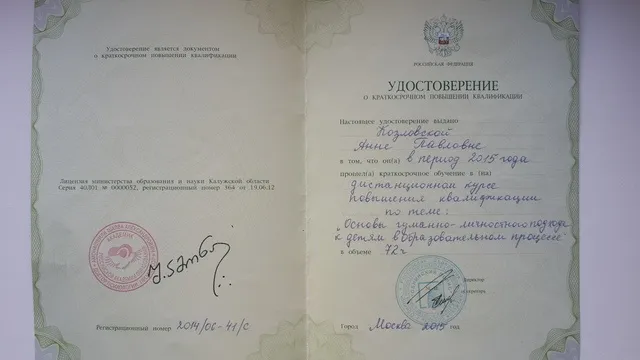 Удостоверение является документом
о краткосрочном повышении квалификации
Лицензия министерства образования и науки Калужской области
Серия 40Л01 № 0000052, регистрационный номер 364 от 19.06.12
Регистрационный номер 2014/06-41/С
РОССИЙСКАЯ ФЕДЕРАЦИЯ
УДОСТОВЕРЕНИЕ
О КРАТКОСРОЧНОМ ПОВЫШЕНИИ КВАЛИФИКАЦИИ
Настоящее удостоверение выдано
Козловской
Анне Павловне
в том, что он(а) в период 2015 года
прошел(а) краткосрочное обучение в (на)
дистанционном курсе
повышения квалификации
по теме:
"Основы гуманно-личностного подхода
к детям в образовательном процессе"
в объеме 72ч
Директор
Город Москва 2015 год